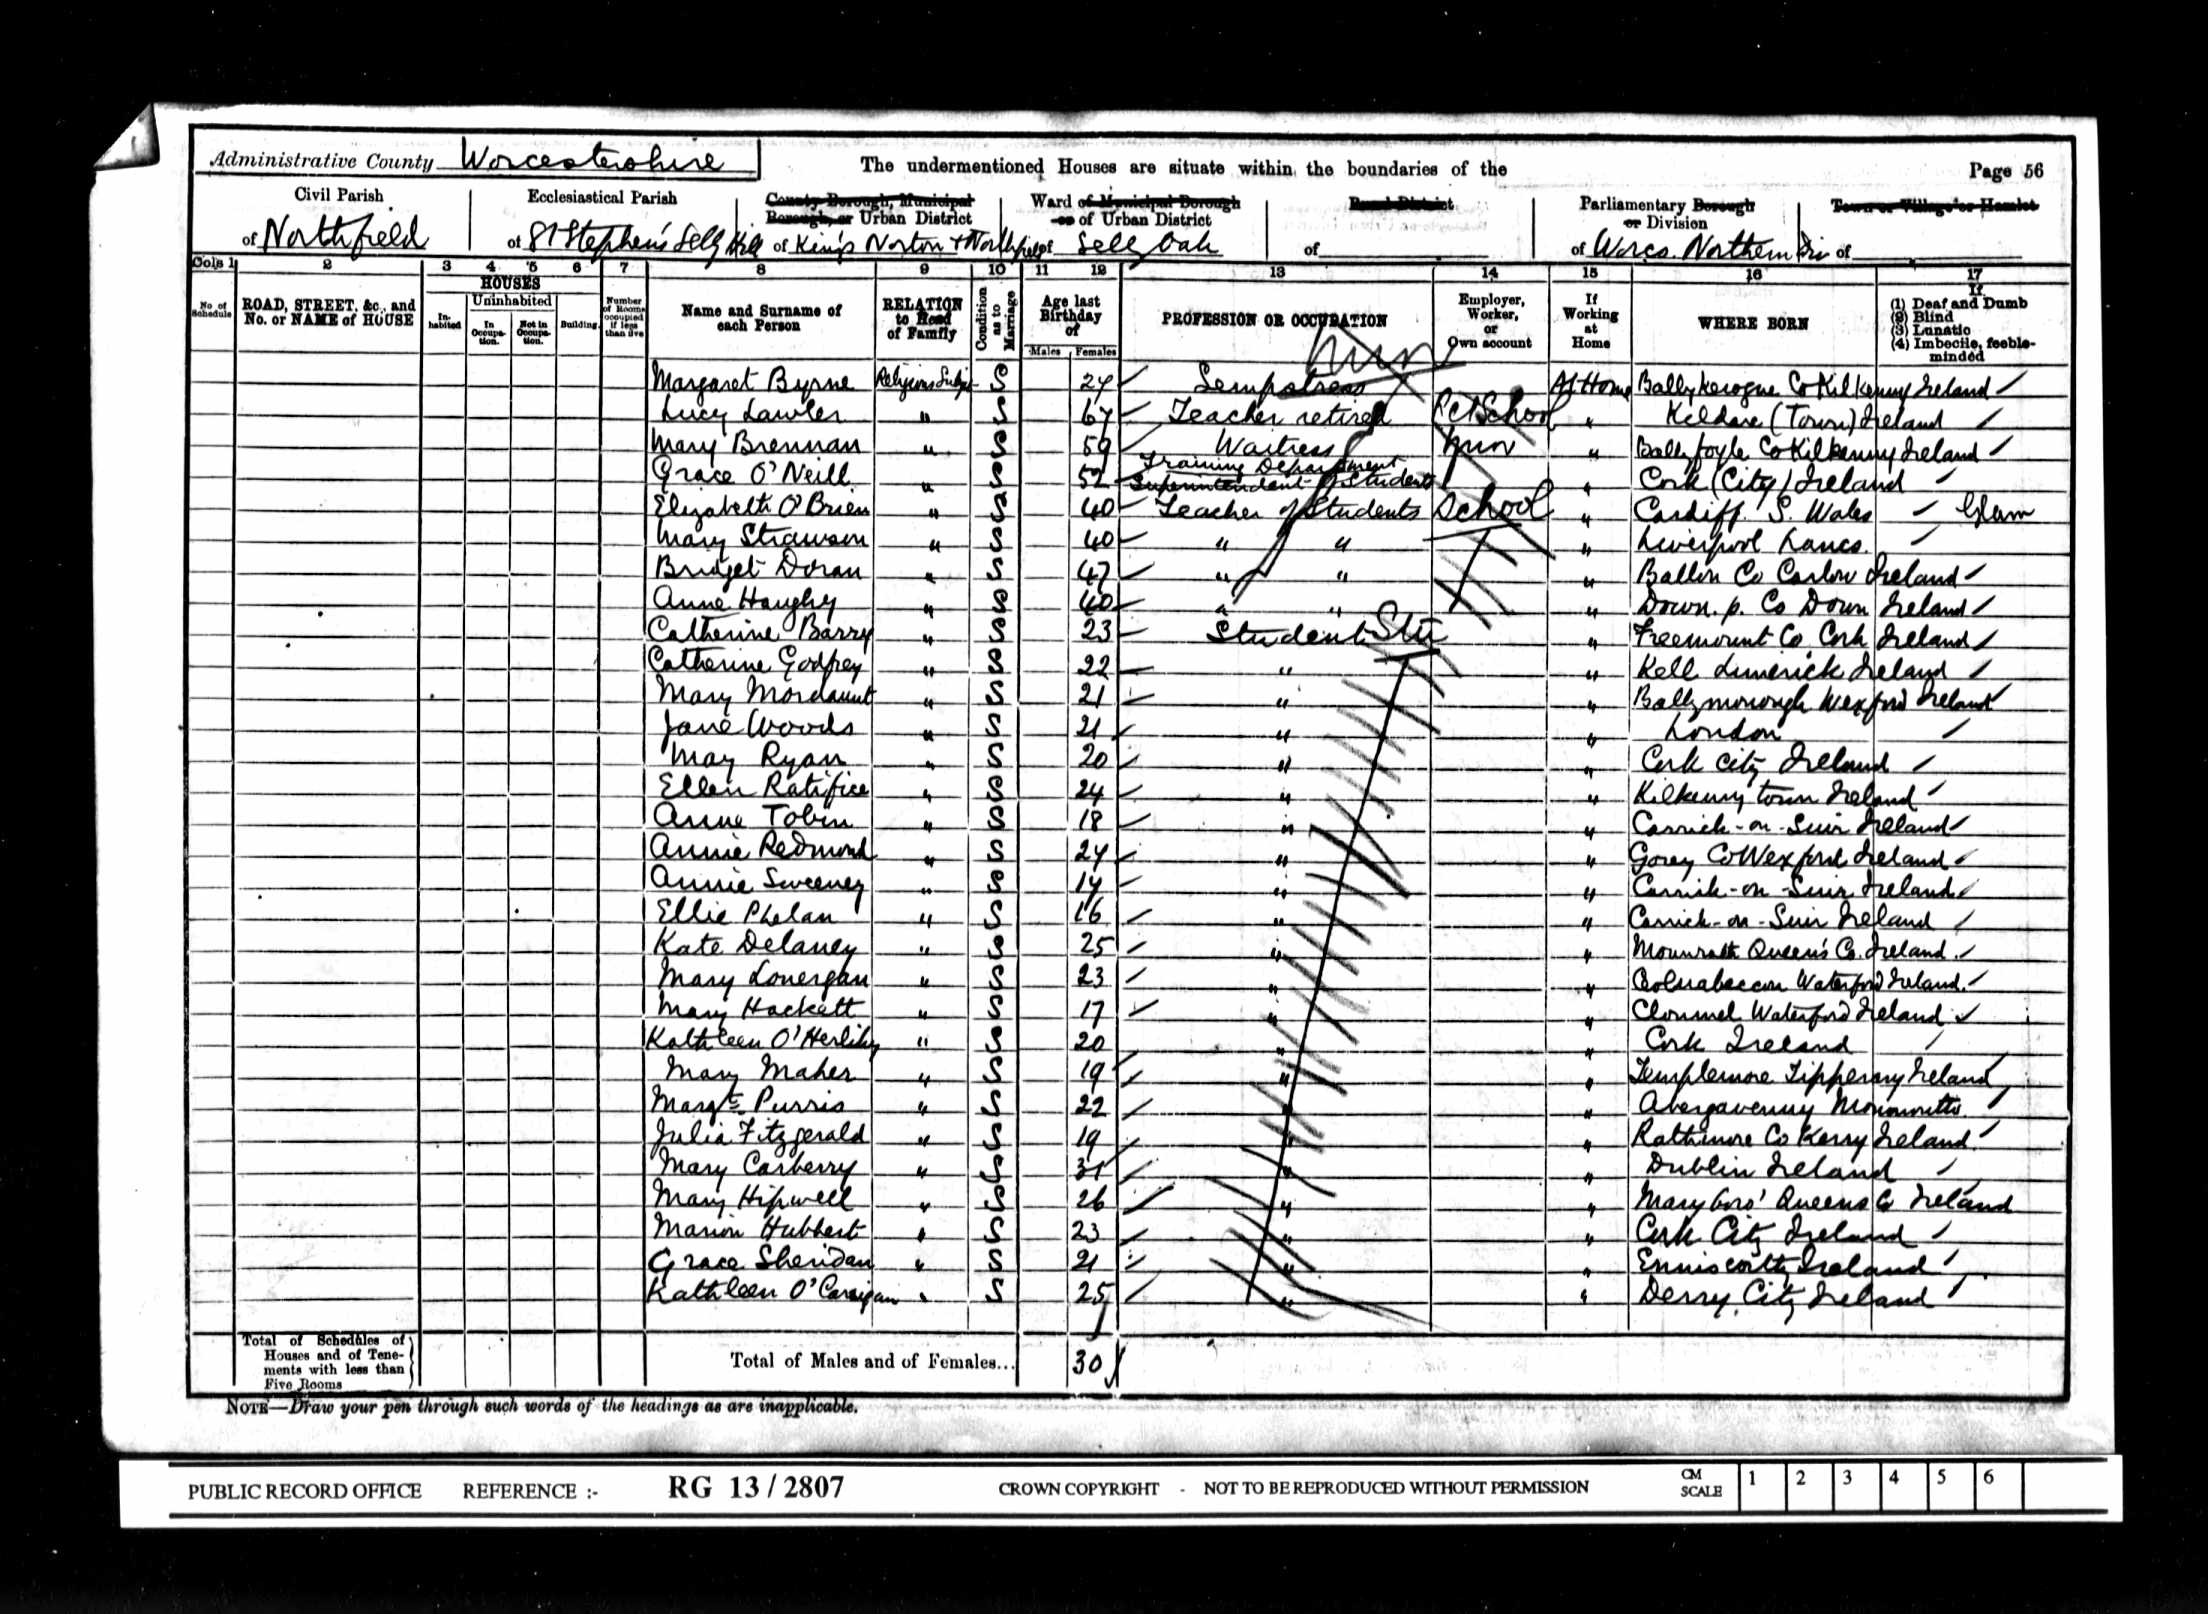 Administrative County Worcestershire
The undermentioned Houses are situate within the boundaries of the
Page 56
Civil Parish
of Northfield
Ecclesiastical Parish
of St Stephen's Selly Hill
County Borough, Municipal
Borough, or Urban District
of King's Norton & Northfield
Ward of Municipal Borough
or of Urban District
of Selly Oak
Rural District
of
Parliamentary Borough
or Division
of Worcs. Northern Div
Town or Village or Hamlet
of
Cols 1 2 3 4 5 6 7 8 9 10 11 12 13 14 15 16 17
No of Schedule
ROAD, STREET, &c., and No. or NAME of HOUSE
HOUSES
Inhabited
Uninhabited
In Occupation.
Not in Occupation.
Building.
Number of Rooms occupied if less than five
Name and Surname of each Person
RELATION to Head of Family
Condition as to Marriage
Age last Birthday of
Males Females
PROFESSION OR OCCUPATION
Employer, Worker, or Own account
If Working at Home
WHERE BORN
If
(1) Deaf and Dumb
(2) Blind
(3) Lunatic
(4) Imbecile, feeble-minded
nun
Margaret Byrne Religious S 24 Sempstress At Home Co Kilkenny Ireland
Lucy Lawler " S 67 Teacher retired School " Kildare (Town) Ireland
Mary Brennan " S 59 Waitress nun " Ballyfoyle Co Kilkenny Ireland
Grace O'Neill " S 52 Training Department Superintendent of Students " Cork (City) Ireland
Elizabeth O'Brien " S 40 Teacher of Students School " Cardiff S. Wales Glam
Mary Strawson " S 40 " " " Liverpool Lancs.
Bridget Doran " S 47 " " " Ballon Co Carlow Ireland
Anne Haughy " S 40 " " " Down. p. Co Down Ireland
Catherine Barry " S 23 Student Stu " Freemount Co Cork Ireland
Catherine Godfrey " S 22 " " Limerick Ireland
Mary Mordaunt " S 21 " " Wexford Ireland
Jane Woods " S 21 " " London
May Ryan " S 20 " " Cork City Ireland
Ellen Ratifice " S 24 " " Kilkenny town Ireland
Anne Tobin " S 18 " " Carrick-on-Suir Ireland
Annie Redmond " S 24 " " Gorey Co Wexford Ireland
Annie Sweeney " S 19 " " Carrick-on-Suir Ireland
Ellie Phelan " S 16 " " Carrick-on-Suir Ireland
Kate Delaney " S 25 " " Mounrath Queen's Co. Ireland
Mary Lonergan " S 23 " " Waterford Ireland
Mary Hackett " S 17 " " Clonmel Waterford Ireland
Kathleen O'Herlihy " S 20 " " Cork Ireland
Mary Maher " S 19 " " Templemore Tipperary Ireland
Margt Purris " S 22 " " Abergavenny
Julia Fitzgerald " S 19 " " Rathmore Co Kerry Ireland
Mary Carberry " S 31 " " Dublin Ireland
Mary Hipwell " S 26 " " Maryboro' Queens Co Ireland
Marion Hubbert " S 23 " " Cork City Ireland
Grace Sheridan " S 21 " " Enniscorthy Ireland
Kathleen O'Corrigan " S 25 " " Derry City Ireland
Total of Schedules of Houses and of Tenements with less than Five Rooms
Total of Males and of Females... 30
NOTE—Draw your pen through such words of the headings as are inapplicable.
PUBLIC RECORD OFFICE REFERENCE :- RG 13 / 2807 CROWN COPYRIGHT - NOT TO BE REPRODUCED WITHOUT PERMISSION CM SCALE 1 2 3 4 5 6